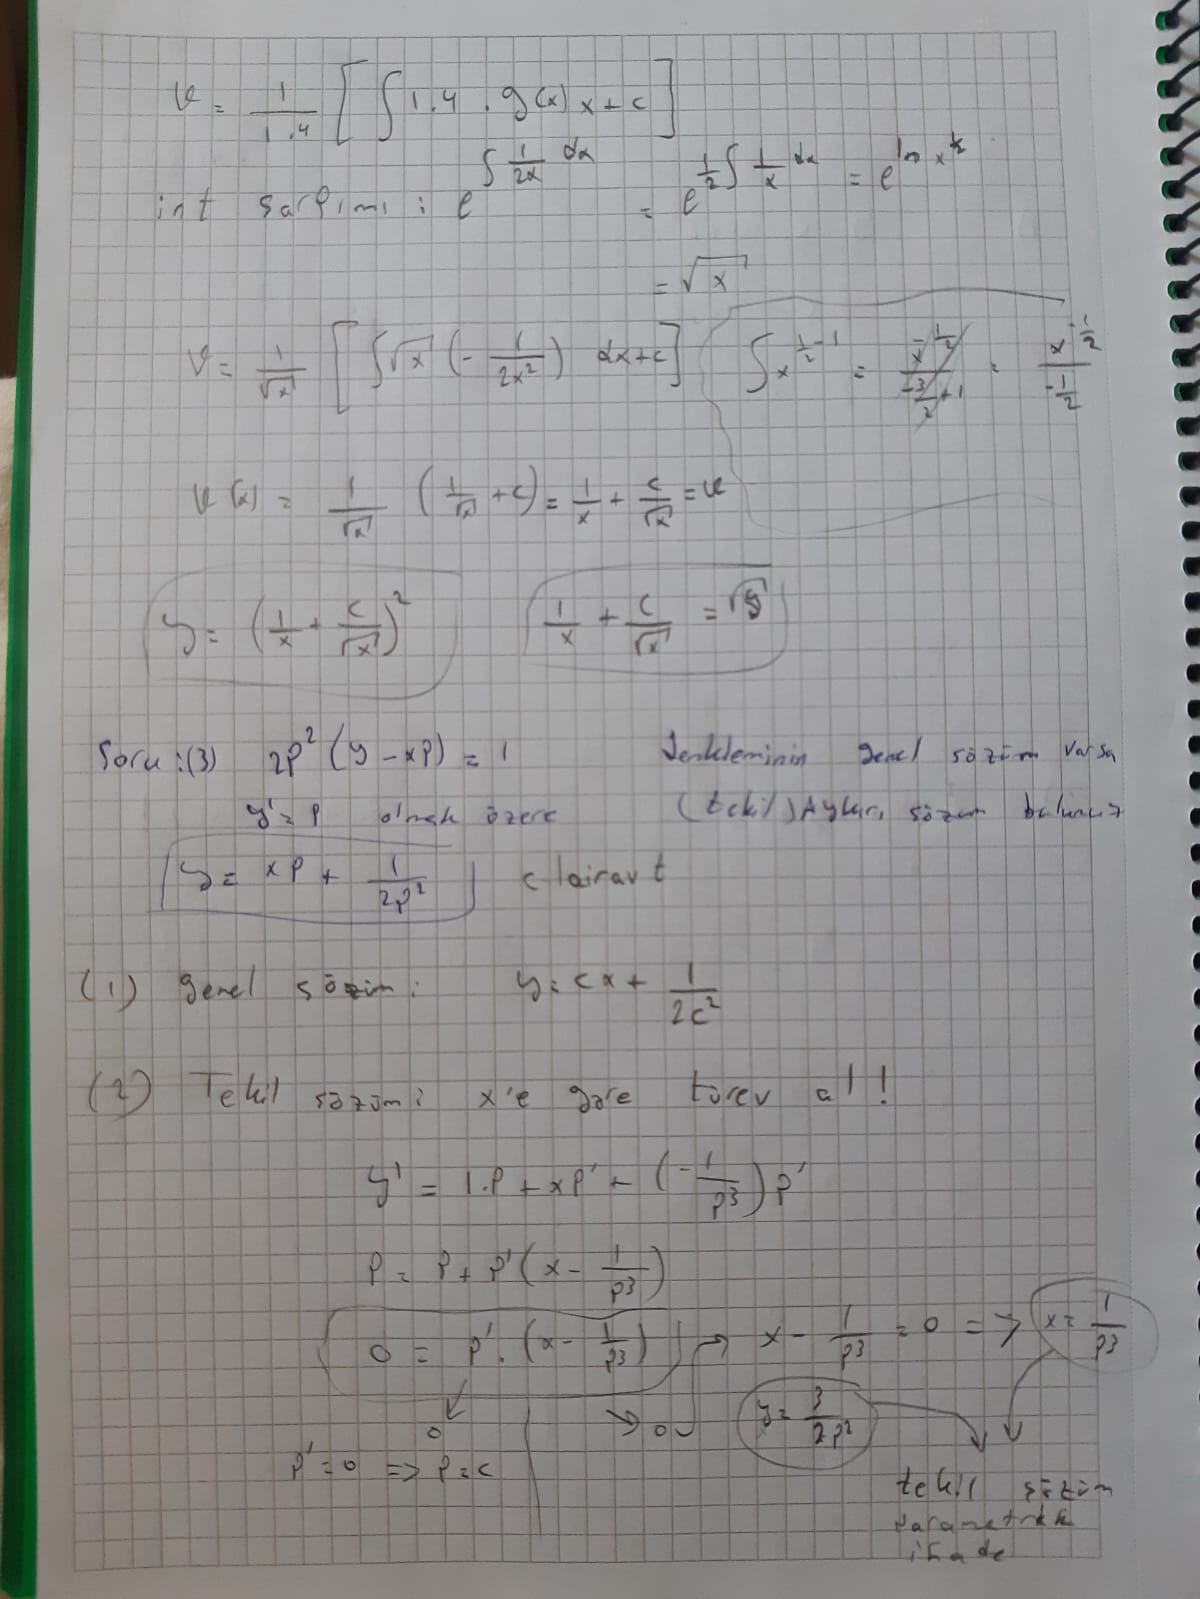 v = 1/(1.4) [ ∫ 1.4 . g(x) x + c ]
int Sarpımı : e^(∫ 1/(2x) dx) = e^(1/2 ∫ 1/x dx) = e^(ln x^(1/2))
= √x
v = 1/√x [ ∫ √x (- 1/(2x²)) dx + c ] ∫ x^(1/2 - 1) = x^(-1/2)/(-3/2 + 1) = x^(-1/2)/(-1/2)
v(x) = 1/√x (1/√x + c) = 1/x + c/√x = v
y = (1/x + c/√x)² 1/x + c/√x = √y
Soru : (3) 2p² (y - xp) = 1 denkleminin genel sözüm varsa
y' = p olmak üzere (tekil) Aykırı sözüm bulunuz
y = xp + 1/(2p²) clairavt
(1) genel sözüm : y = cx + 1/(2c²)
(2) Tekil sözüm : x'e göre türev al !
y' = 1.p + xp' + (- 1/p³) p'
p = p + p' (x - 1/p³)
0 = p' . (x - 1/p³) → x - 1/p³ = 0 => x = 1/p³
0 → 0 y = 3/(2p²)
p' = 0 => p = c
tekil sözüm
parametrik
ifade